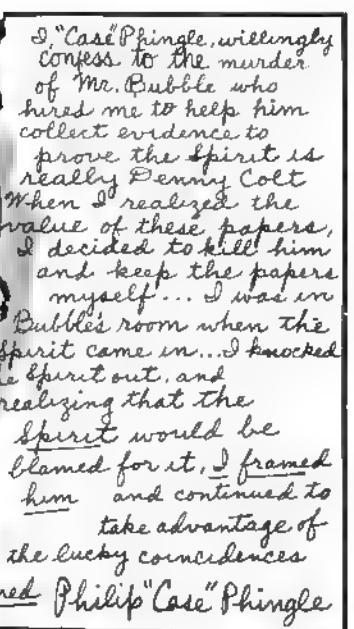 I, "Case" Phingle, willingly
confess to the murder
of Mr. Bubble who
hired me to help him
collect evidence to
prove the Spirit is
really Denny Colt
When I realized the
value of these papers,
I decided to kill him
and keep the papers
myself... I was in
Bubble's room when the
Spirit came in...I knocked
e Spirit out. and
realizing that the
Spirit would be
blamed for it, I framed
him and continued to
take advantage of
the lucky coincidences
red Philip "Case" Phingle